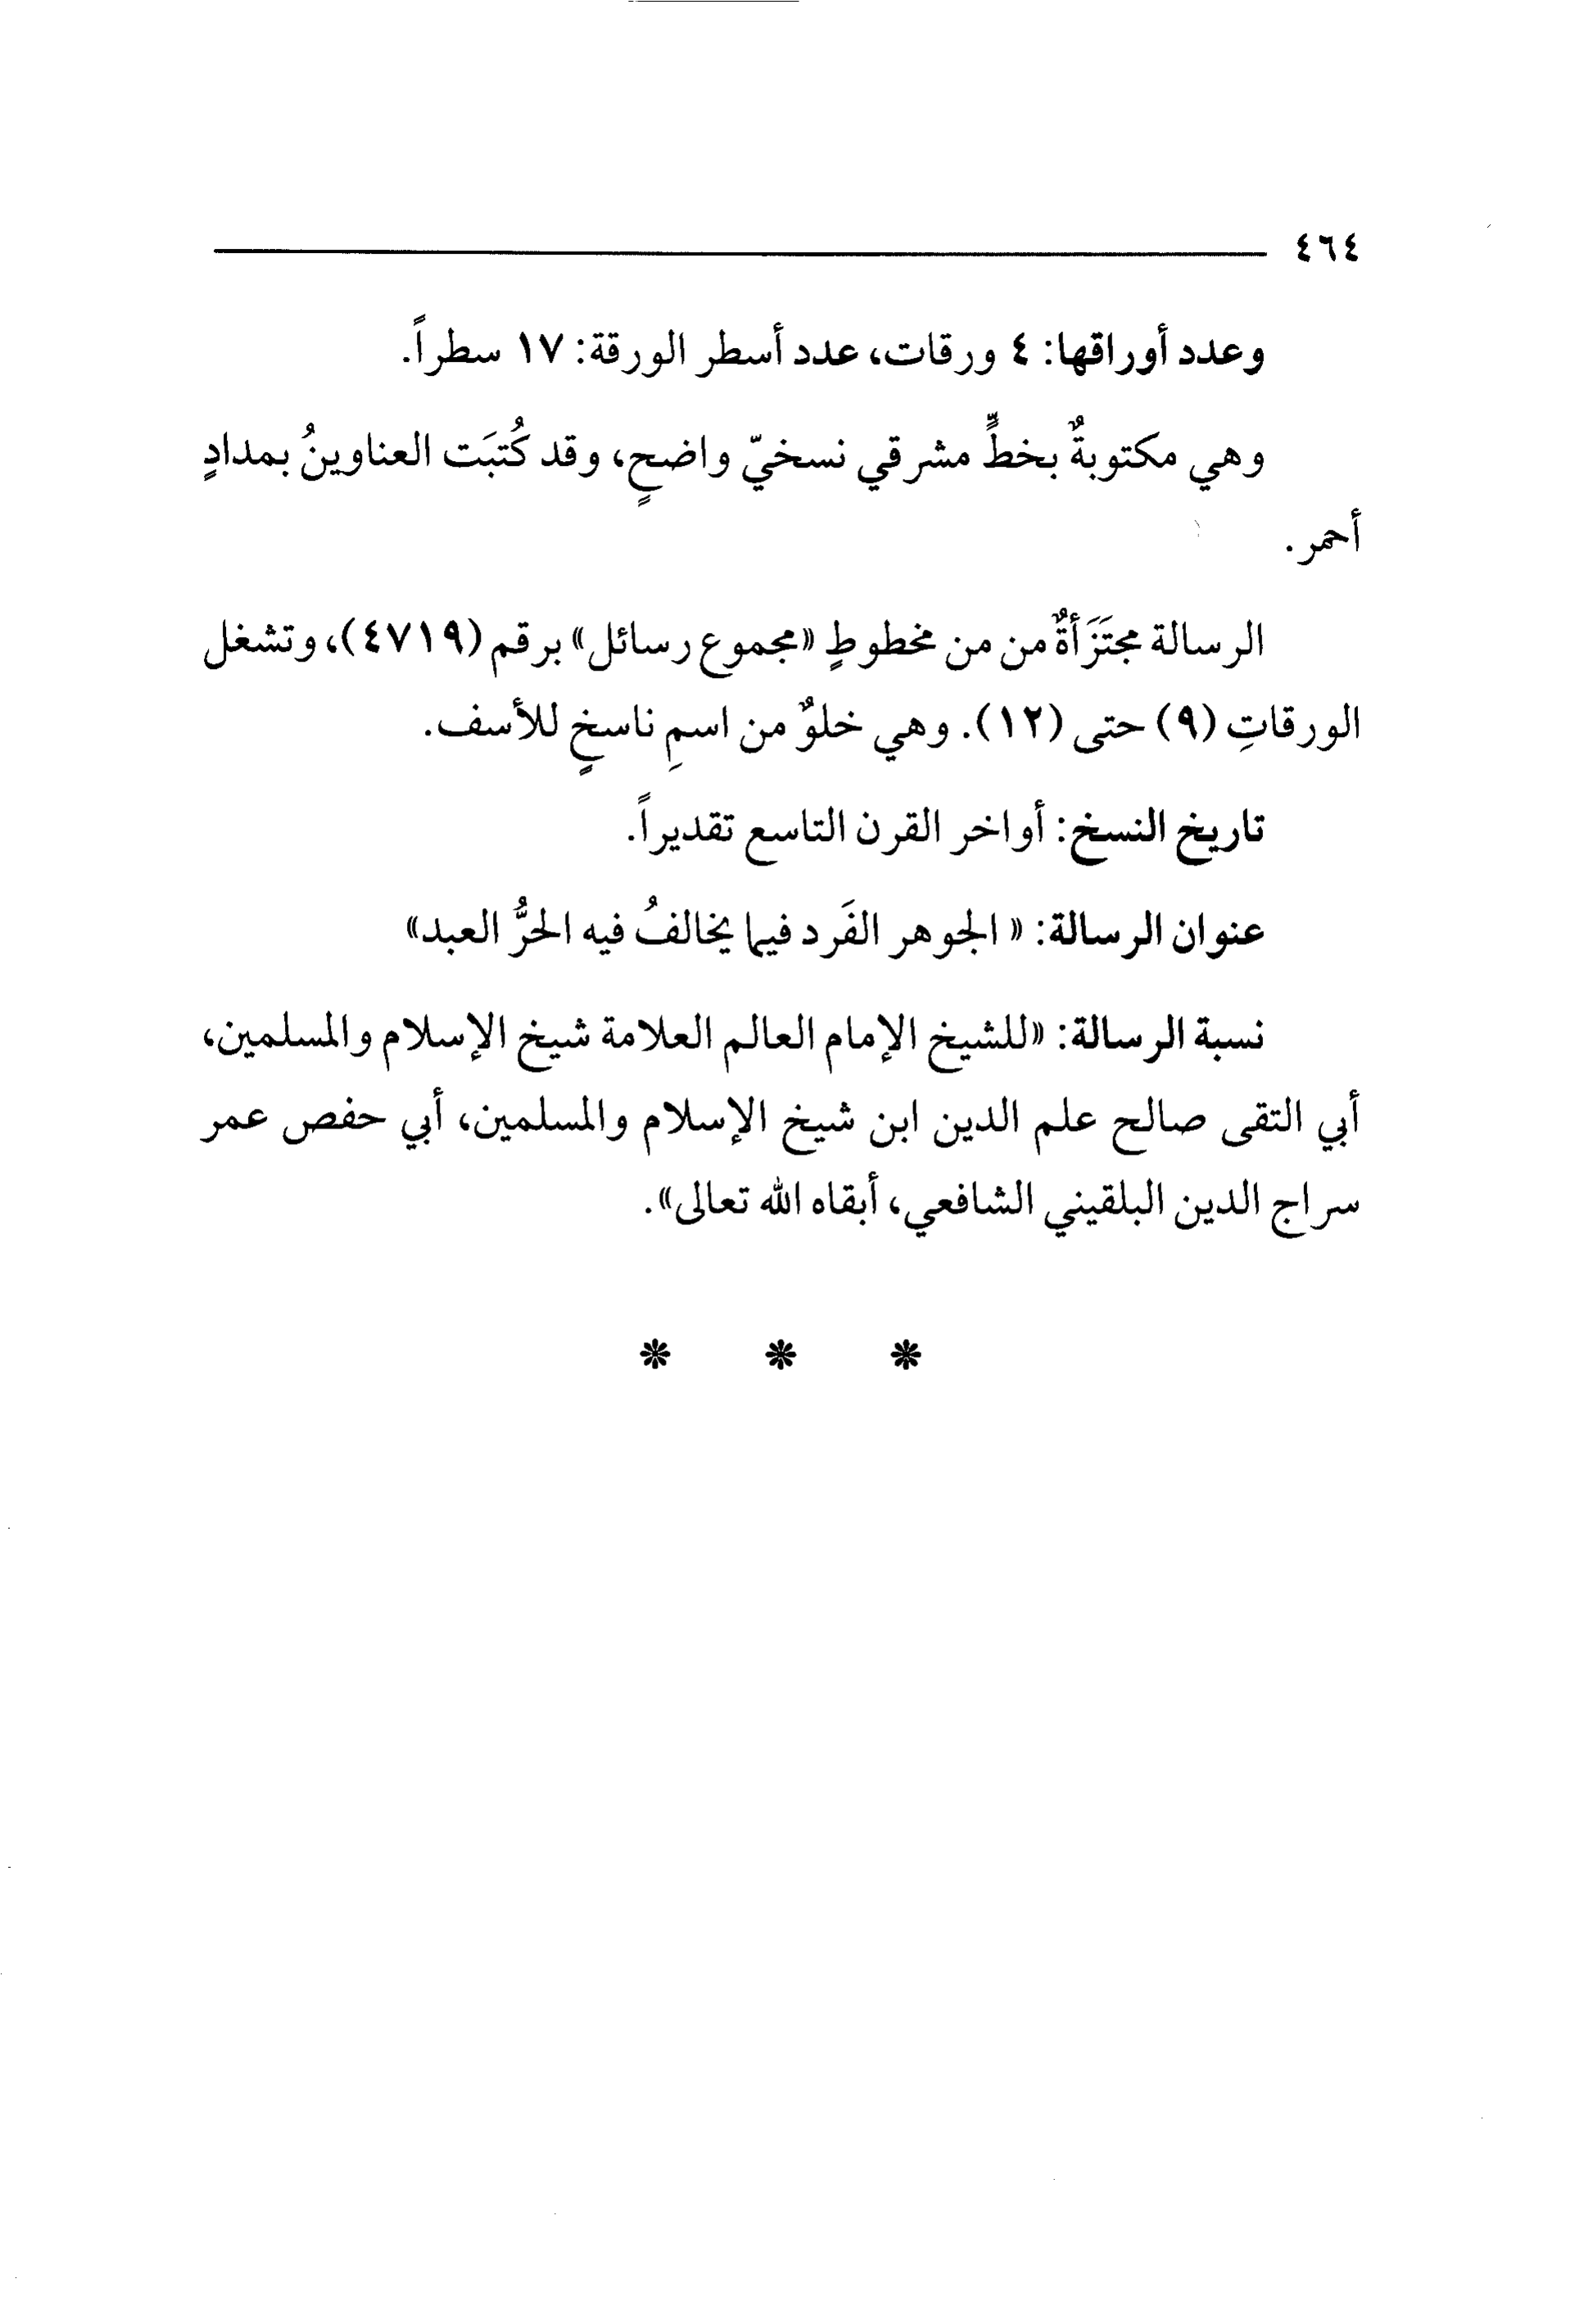 ٤٦٤
وعدد أوراقها: ٤ ورقات، عدد أسطر الورقة: ١٧ سطراً.
وهي مكتوبةٌ بخطٍّ مشرقي نسخيّ واضحٍ، وقد كُتبَت العناوينُ بمدادٍ
أحمر.
الرسالة مجتَزَأةٌ من من مخطوطٍ «مجموع رسائل» برقم (٤٧١٩)، وتشغل
الورقاتِ (٩) حتى (١٢). وهي خلوٌ من اسمِ ناسخٍ للأسف.
تاريخ النسخ: أواخر القرن التاسع تقديراً.
عنوان الرسالة: « الجوهر الفَرد فيما يخالفُ فيه الحرُّ العبد»
نسبة الرسالة: «للشيخ الإمام العالم العلامة شيخ الإسلام والمسلمين،
أبي التقى صالح علم الدين ابن شيخ الإسلام والمسلمين، أبي حفص عمر
سراج الدين البلقيني الشافعي، أبقاه الله تعالى».
* * *